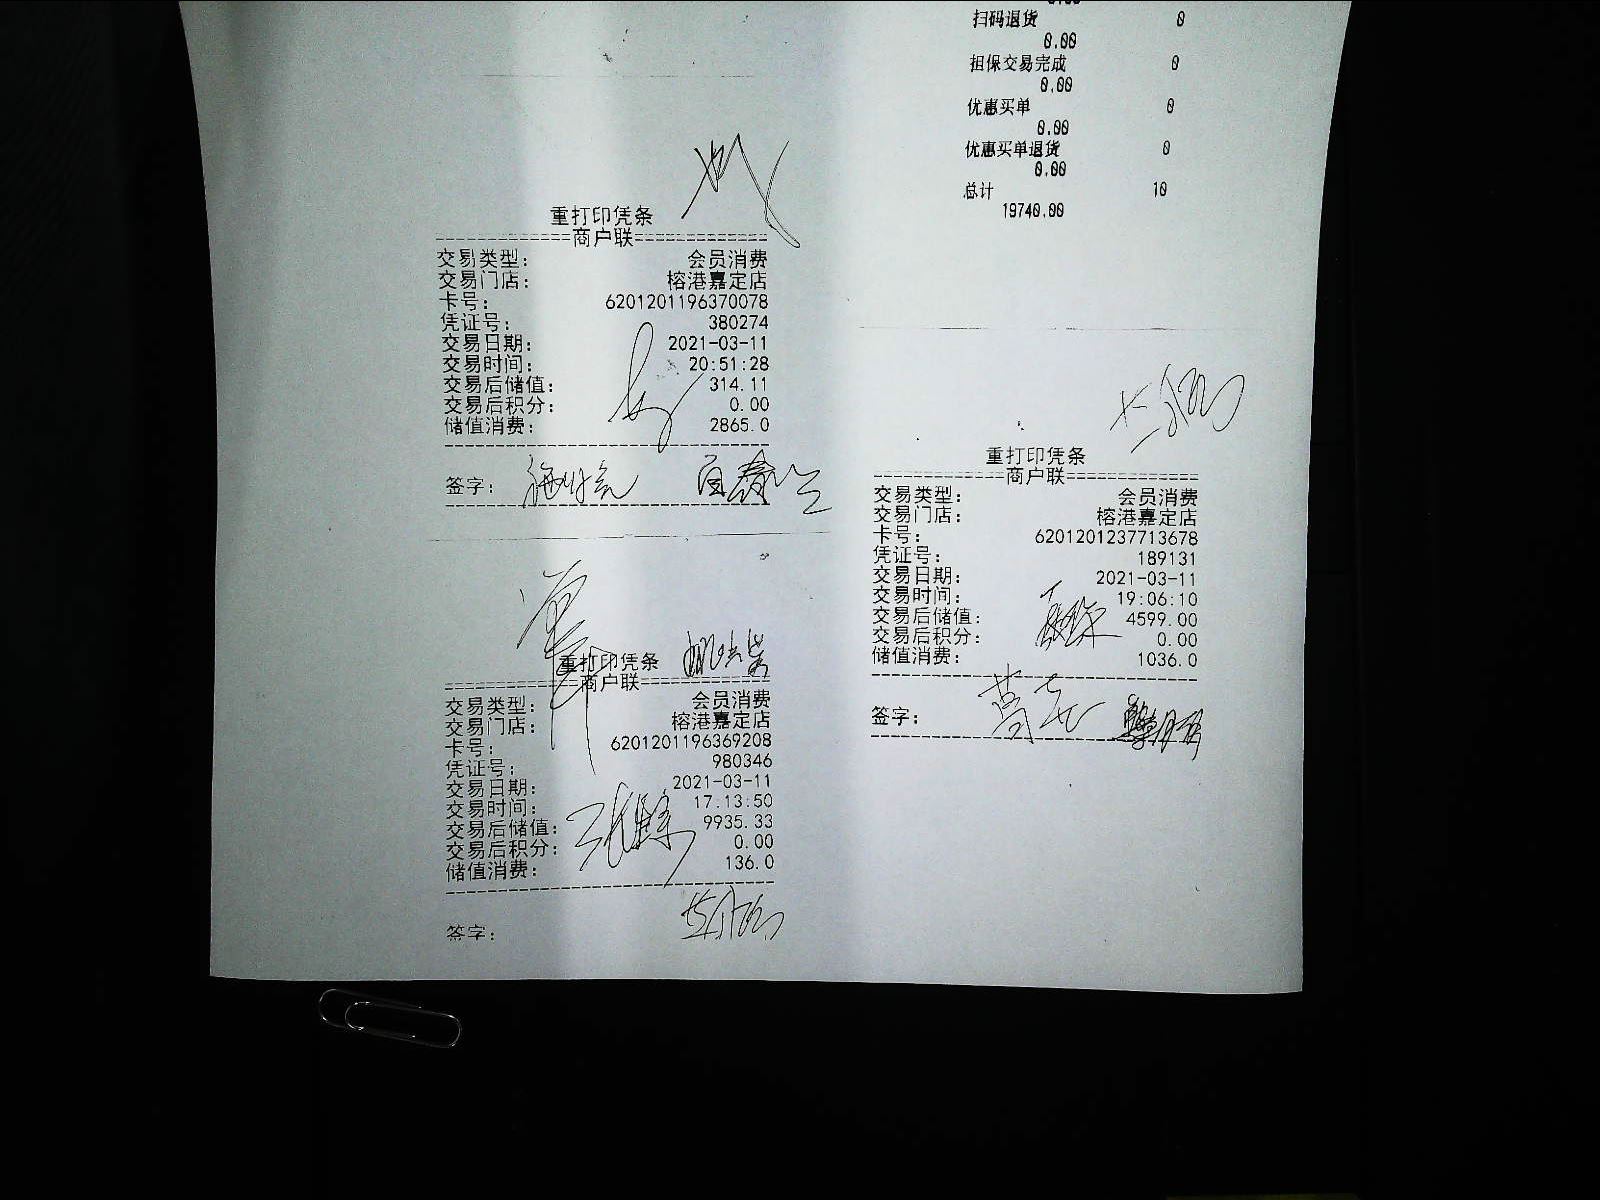 重打印凭条
============商户联============
交易类型: 会员消费
交易门店: 榕港嘉定店
卡号: 6201201196370078
凭证号: 380274
交易日期: 2021-03-11
交易时间: 20:51:28
交易后储值: 314.11
交易后积分: 0.00
储值消费: 2865.0
签字:
重打印凭条
============商户联============
交易类型: 会员消费
交易门店: 榕港嘉定店
卡号: 6201201196369208
凭证号: 980346
交易日期: 2021-03-11
交易时间: 17:13:50
交易后储值: 9935.33
交易后积分: 0.00
储值消费: 136.0
签字:
扫码退货 0
0.00
担保交易完成 0
0.00
优惠买单 0
0.00
优惠买单退货 0
0.00
总计 10
19740.00
重打印凭条
============商户联============
交易类型: 会员消费
交易门店: 榕港嘉定店
卡号: 6201201237713678
凭证号: 189131
交易日期: 2021-03-11
交易时间: 19:06:10
交易后储值: 4599.00
交易后积分: 0.00
储值消费: 1036.0
签字: